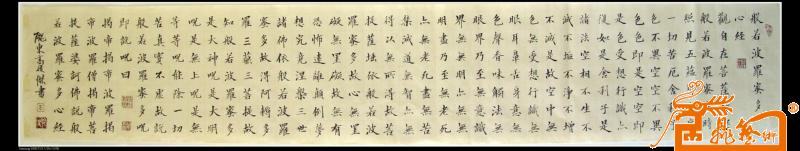 般若波羅蜜多
心經
觀自在菩薩行深
般若波羅蜜多時
照見五蘊皆空度
一切苦厄舍利子
色不異空空不異
色色即是空空即
是色受想行識亦
復如是舍利子是
諸法空相不生不
滅不垢不淨不增
不減是故空中無
色無受想行識無
眼耳鼻舌身意無
色聲香味觸法無
眼界乃至無意識
界無無明亦無無
明盡乃至無老死
亦無老死盡無苦
集滅道無智亦無
得以無所得故菩
提薩埵依般若波
羅蜜多故心無罣
礙無罣礙故無有
恐怖遠離顛倒夢
想究竟涅槃三世
諸佛依般若波羅
蜜多故得阿耨多
羅三藐三菩提故
知般若波羅蜜多
是大神咒是大明
咒是無上咒是無
等等咒能除一切
苦真實不虛故說
般若波羅蜜多咒
即說咒曰
揭帝揭帝般羅揭
帝般羅僧揭帝菩
提薩婆訶佛說般
若波羅蜜多心經